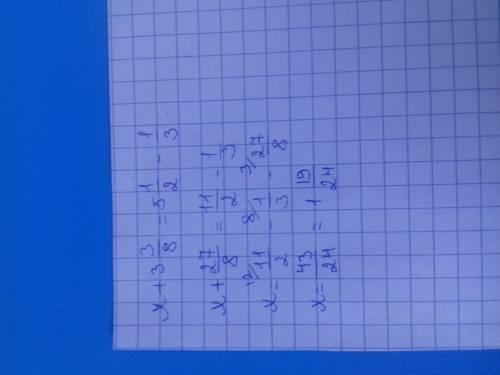 x + 3 3/8 = 5 1/2 - 1/3
x + 27/8 = 11/2 - 1/3
x = 12/ 11/2 - 8/ 1/3 - 3/ 27/8
x = 43/24 = 1 19/24